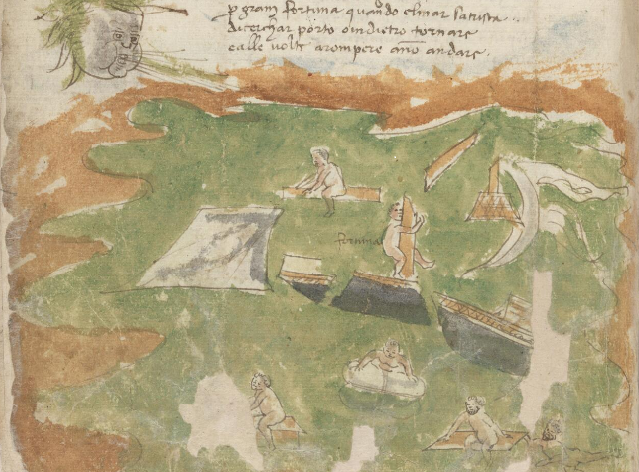 p gram fortuna quando elmar satrista
di cerchar porto o indietro tornare
e alle volte a rompere ano andare.
fortuna